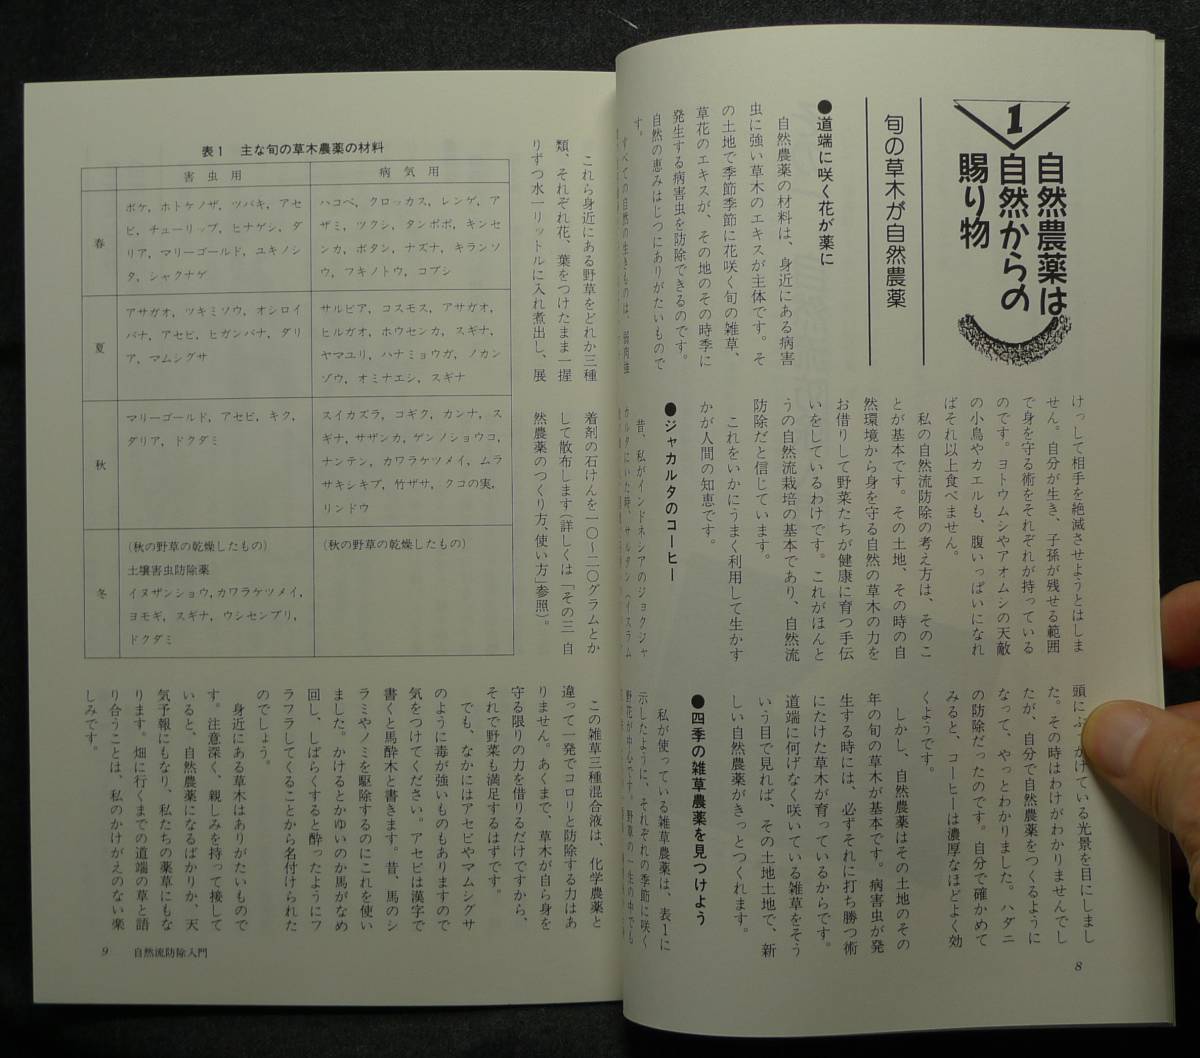 1
自然農薬は
自然からの
賜り物
旬の草木が自然農薬
●道端に咲く花が薬に
自然農薬の材料は、身近にある病害
虫に強い草木のエキスが主体です。そ
の土地で季節季節に花咲く旬の雑草、
草花のエキスが、その地のその時季に
発生する病害虫を防除できるのです。
自然の恵みはじつにありがたいもので
す。
すべての自然の生きものは、弱肉強
けっして相手を絶滅させようとはしま
せん。自分が生き、子孫が残せる範囲
で身を守る術をそれぞれが持っている
のです。ヨトウムシやアオムシの天敵
の小鳥やカエルも、腹いっぱいになれ
ばそれ以上食べません。
私の自然流防除の考え方は、そのこ
とが基本です。その土地、その時の自
然環境から身を守る自然の草木の力を
お借りして野菜たちが健康に育つ手伝
いをしているわけです。これがほんと
うの自然流栽培の基本であり、自然流
防除だと信じています。
これをいかにうまく利用して生かす
かが人間の知恵です。
●ジャカルタのコーヒー
昔、私がインドネシアのジョクジャ
カルタにいた時、サルタン（イスラム
頭にぶっかけている光景を目にしまし
た。その時はわけがわかりませんでし
たが、自分で自然農薬をつくるように
なって、やっとわかりました。ハダニ
の防除だったのです。自分で確かめて
みると、コーヒーは濃厚なほどよく効
くようです。
しかし、自然農薬はその土地のその
年の旬の草木が基本です。病害虫が発
生する時には、必ずそれに打ち勝つ術
にたけた草木が育っているからです。
道端に何げなく咲いている雑草をそう
いう目で見れば、その土地土地で、新
しい自然農薬がきっとつくれます。
●四季の雑草農薬を見つけよう
私が使っている雑草農薬は、表１に
示したように、それぞれの季節に咲く
野花が中心です。野草の一生の中でも
8
表１　主な旬の草木農薬の材料
害虫用　病気用
春
ボケ，ホトケノザ，ツバキ，アセ
ビ，チューリップ，ヒナゲシ，ダ
リア，マリーゴールド，ユキノシ
タ，シャクナゲ
ハコベ，クロッカス，レンゲ，ア
ザミ，ツクシ，タンポポ，キンセ
ンカ，ボタン，ナズナ，キランソ
ウ，フキノトウ，コブシ
夏
アサガオ，ツキミソウ，オシロイ
バナ，アセビ，ヒガンバナ，ダリ
ア，マムシグサ
サルビア，コスモス，アサガオ，
ヒルガオ，ホウセンカ，スギナ，
ヤマユリ，ハナミョウガ，ノカン
ゾウ，オミナエシ，スギナ
秋
マリーゴールド，アセビ，キク，
ダリア，ドクダミ
スイカズラ，コギク，カンナ，ス
ギナ，サザンカ，ゲンノショウコ，
ナンテン，カワラケツメイ，ムラ
サキシキブ，竹ザサ，クコの実，
リンドウ
冬
(秋の野草の乾燥したもの)
土壌害虫防除薬
イヌザンショウ，カワラケツメイ，
ヨモギ，スギナ，ウシセンブリ，
ドクダミ
(秋の野草の乾燥したもの)
これら身近にある野草をどれか三種
類、それぞれ花、葉をつけたまま一握
りずつ水一リットルに入れ煮出し、展
着剤の石けんを一〇〜二〇グラムとか
して散布します（詳しくは「その三　自
然農薬のつくり方、使い方」参照）。
この雑草三種混合液は、化学農薬と
違って一発でコロリと防除する力はあ
りません。あくまで、草木が自ら身を
守る限りの力を借りるだけですから、
それで野菜も満足するはずです。
でも、なかにはアセビやマムシグサ
のように毒が強いものもありますので
気をつけてください。アセビは漢字で
書くと馬酔木と書きます。昔、馬のシ
ラミやノミを駆除するのにこれを使い
ました。かけるとかゆいのか馬がなめ
回し、しばらくすると酔ったようにフ
ラフラしてくることから名付けられた
のでしょう。
身近にある草木はありがたいもので
す。注意深く、親しみを持って接して
いると、自然農薬になるばかりか、天
気予報にもなり、私たちの薬草にもな
ります。畑に行くまでの道端の草と語
り合うことは、私のかけがえのない楽
しみです。
9　自然流防除入門